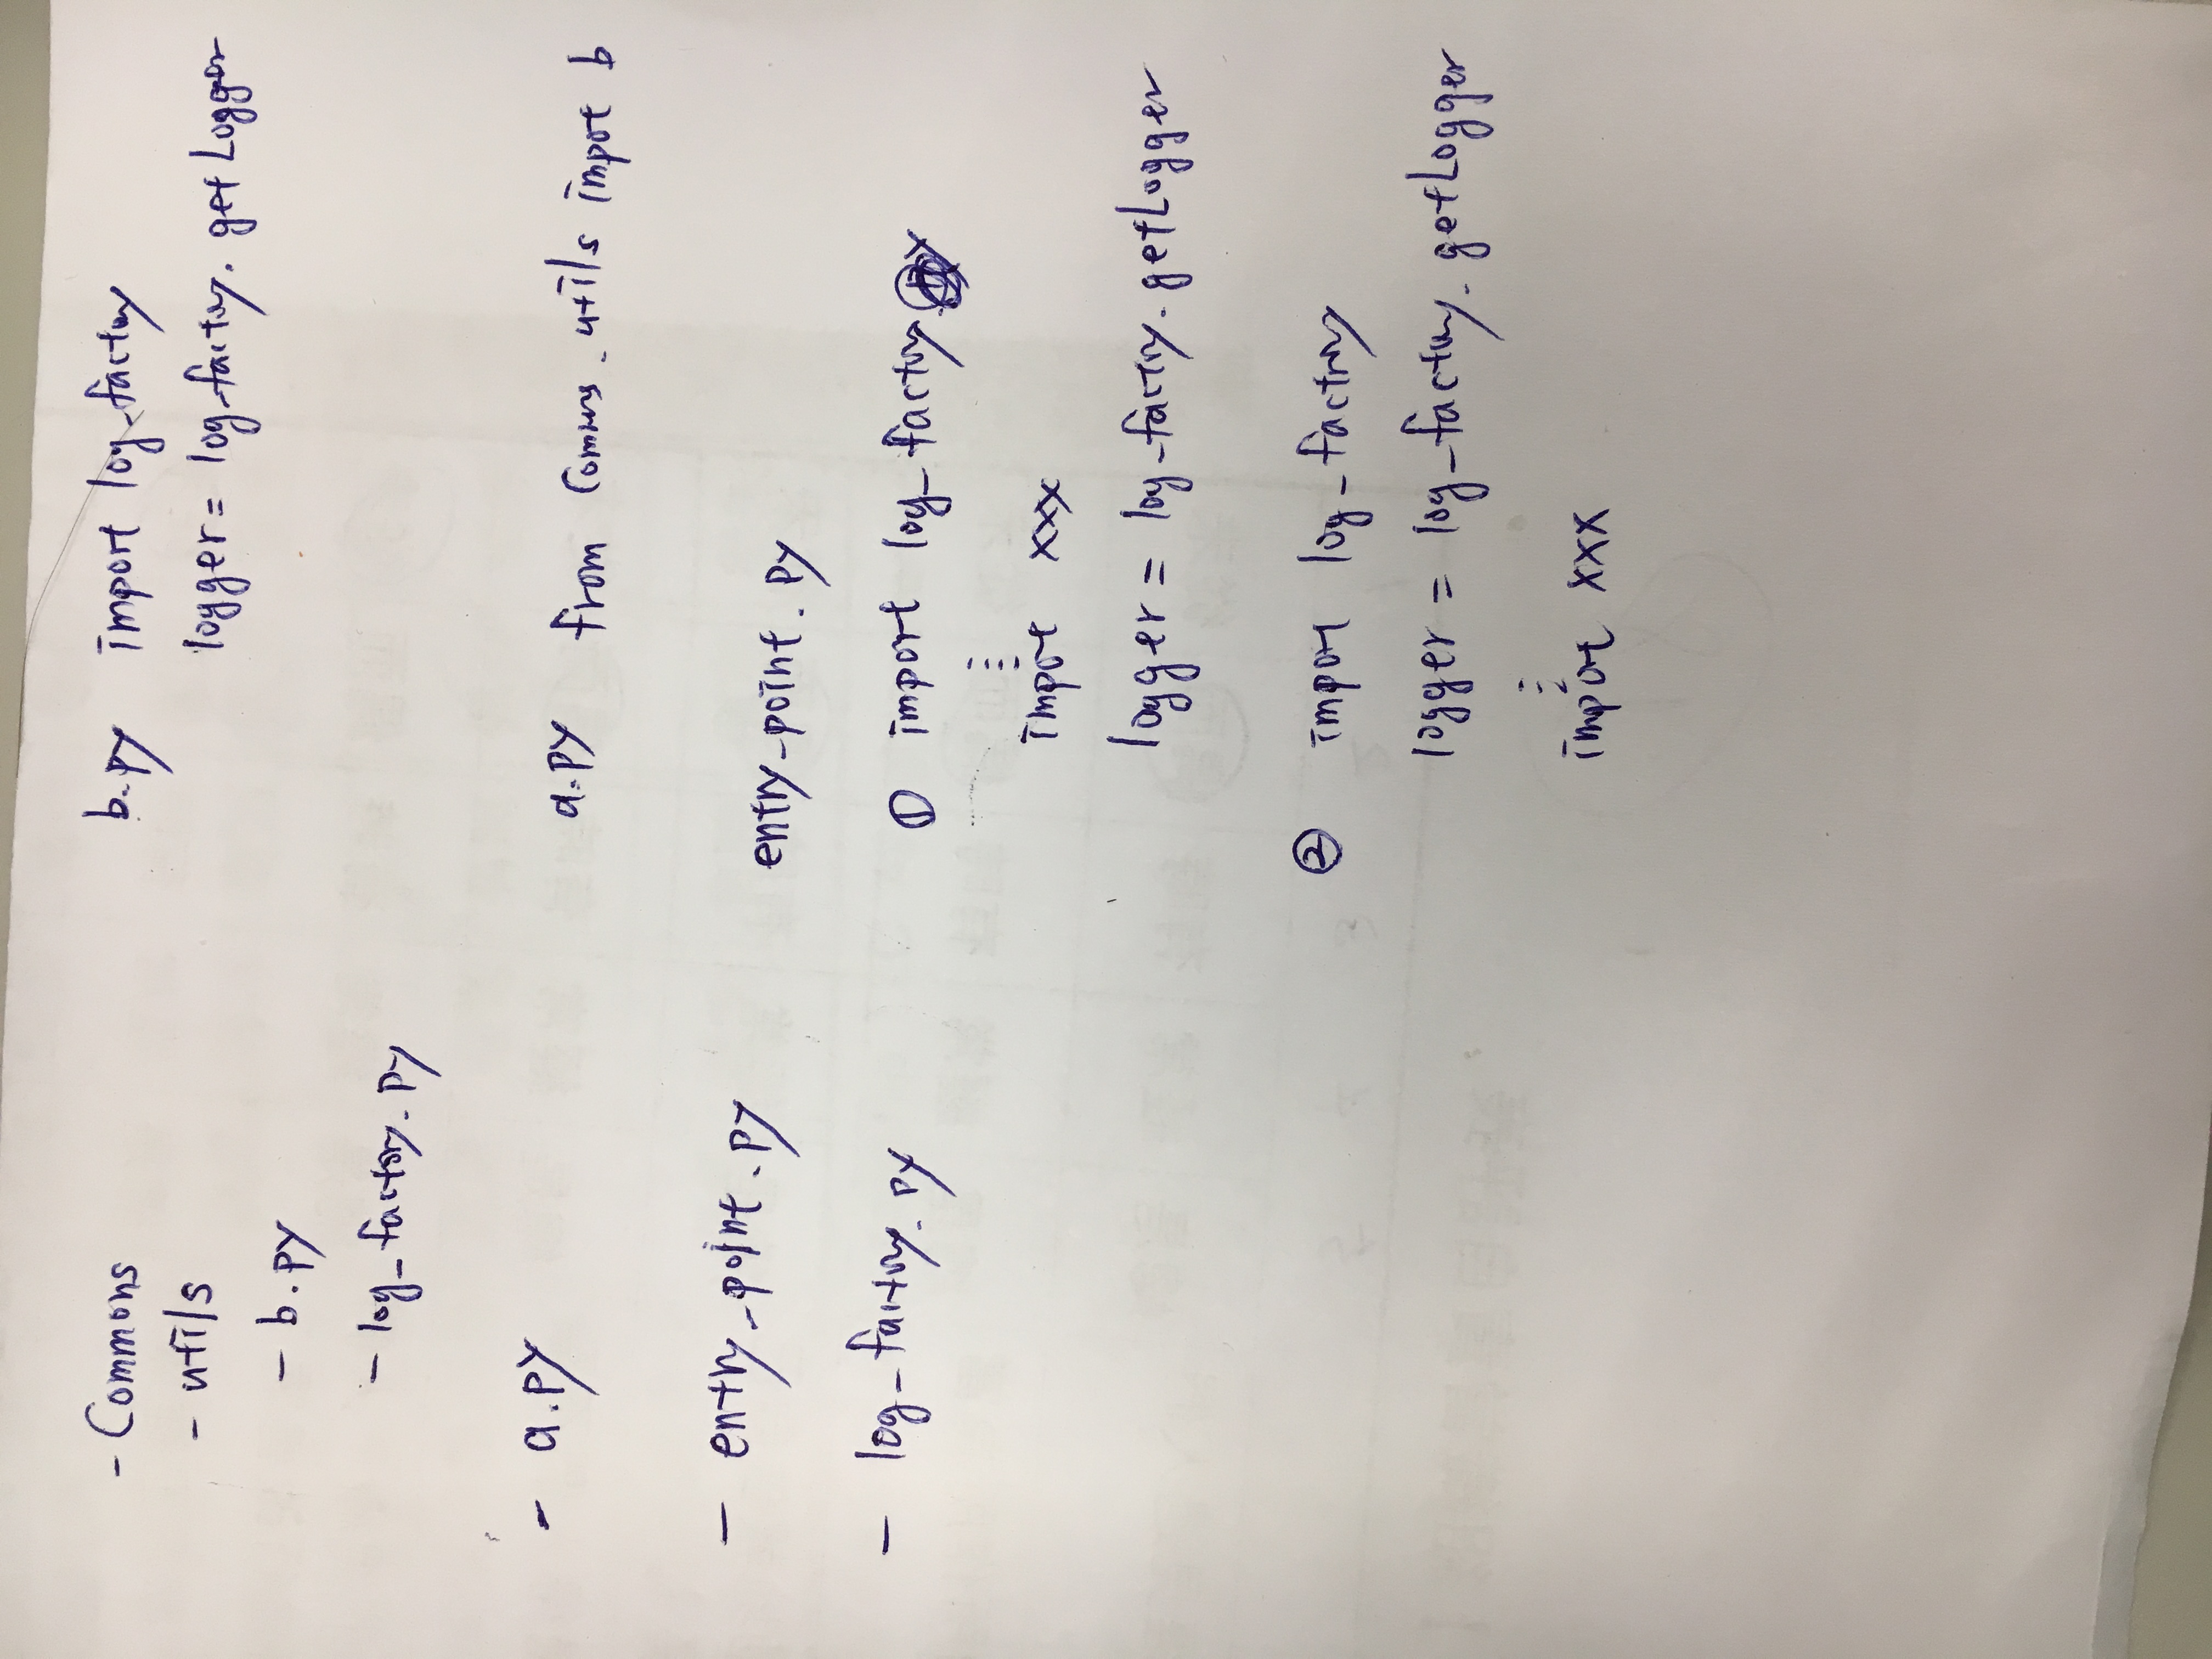 - Commons
- utils
- b.py
- log_factory.py
- a.py
- entry_point.py
- log_factory.py
b.py import log_factory
logger = log_factory.getLogger
a.py from Commons.utils import b
entry_point.py
① import log_factory
import xxx
logger = log_factory.getLogger
② import log_factory
logger = log_factory.getLogger
import xxx